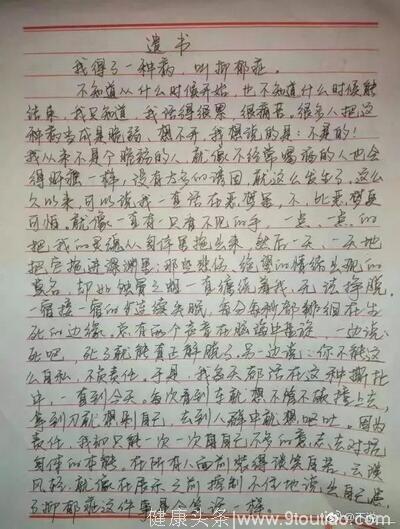 遗书
我得了一种病，叫抑郁症。
不知道从什么时候开始，也不知道什么时候能
结束，我只知道，我活得很累，很痛苦。很多人把这
种病当成是脆弱、想不开，我想说的是：不是的！
我从来不是个脆弱的人，就像不经常喝酒的人也会
得肝癌一样，没有太多的诱因，就这么发生了，这么
久以来，可以说我一直活在恶梦里，不，比恶梦更
可怕。就像一直有一只看不见的手，一点、一点的
把我的灵魂从身体里拖出来，然后一天、一天地
把它拖进深渊里；那些悲伤、绝望的情绪出现的
莫名，却如蚀骨之蛆一直缠绕着我，无法挣脱。
一宿接一宿的持续失眠，每分每秒都徘徊在生
死的边缘，总有两个声音在脑海中, 一边说：
死吧，死了就能真正解脱了，另一边说：你不能这
么自私，不负责任。于是，我每天都活在这种撕扯
中，一直到今天。每次看到车就想不管不顾撞上去，
拿到刀就想割自己，去到人群中就想呕吐。因为
责任，我却只能一次一次用自己不多的意志去对抗
身体的本能。在所有人面前装得谈笑自若、云淡
风轻，就像在展示之前抑制不住地说出自己患
了抑郁症这件事是个笑话一样。
健康头条
@不晚